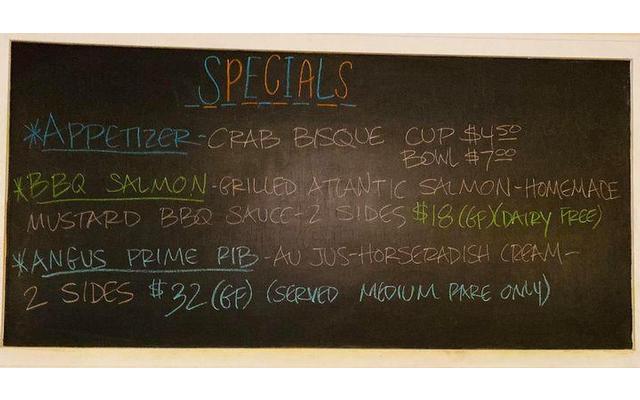 SPECIALS
*APPETIZER-CRAB BISQUE CUP $4.50
BOWL $7.00
*BBQ SALMON-GRILLED ATLANTIC SALMON-HOMEMADE
MUSTARD BBQ SAUCE-2 SIDES $18 (GF)(DAIRY FREE)
*ANGUS PRIME RIB-AU JUS-HORSERADISH CREAM-
2 SIDES $32 (GF) (SERVED MEDIUM RARE ONLY)